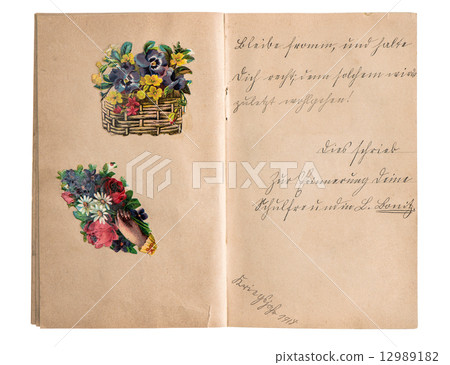 Bleibe fromm, und halte
Dich recht; denn solchem wird
zuletzt wohlgehen!
Dies schrieb
Zur Erinnerung Deine
Schulfreundin L. Bonitz.
Kriegsjahr 1918
PIXTA
12989182